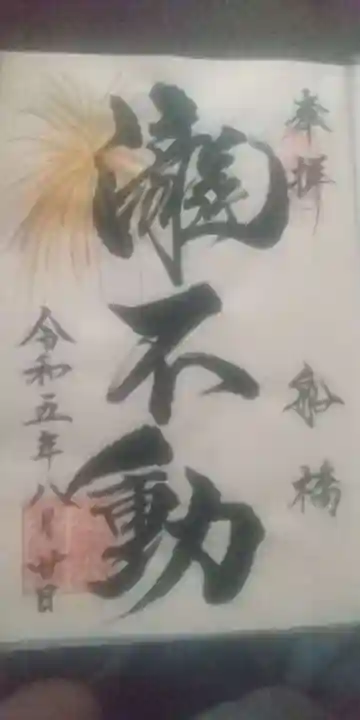 奉拝
船橋
瀧不動
令和五年八月廿日